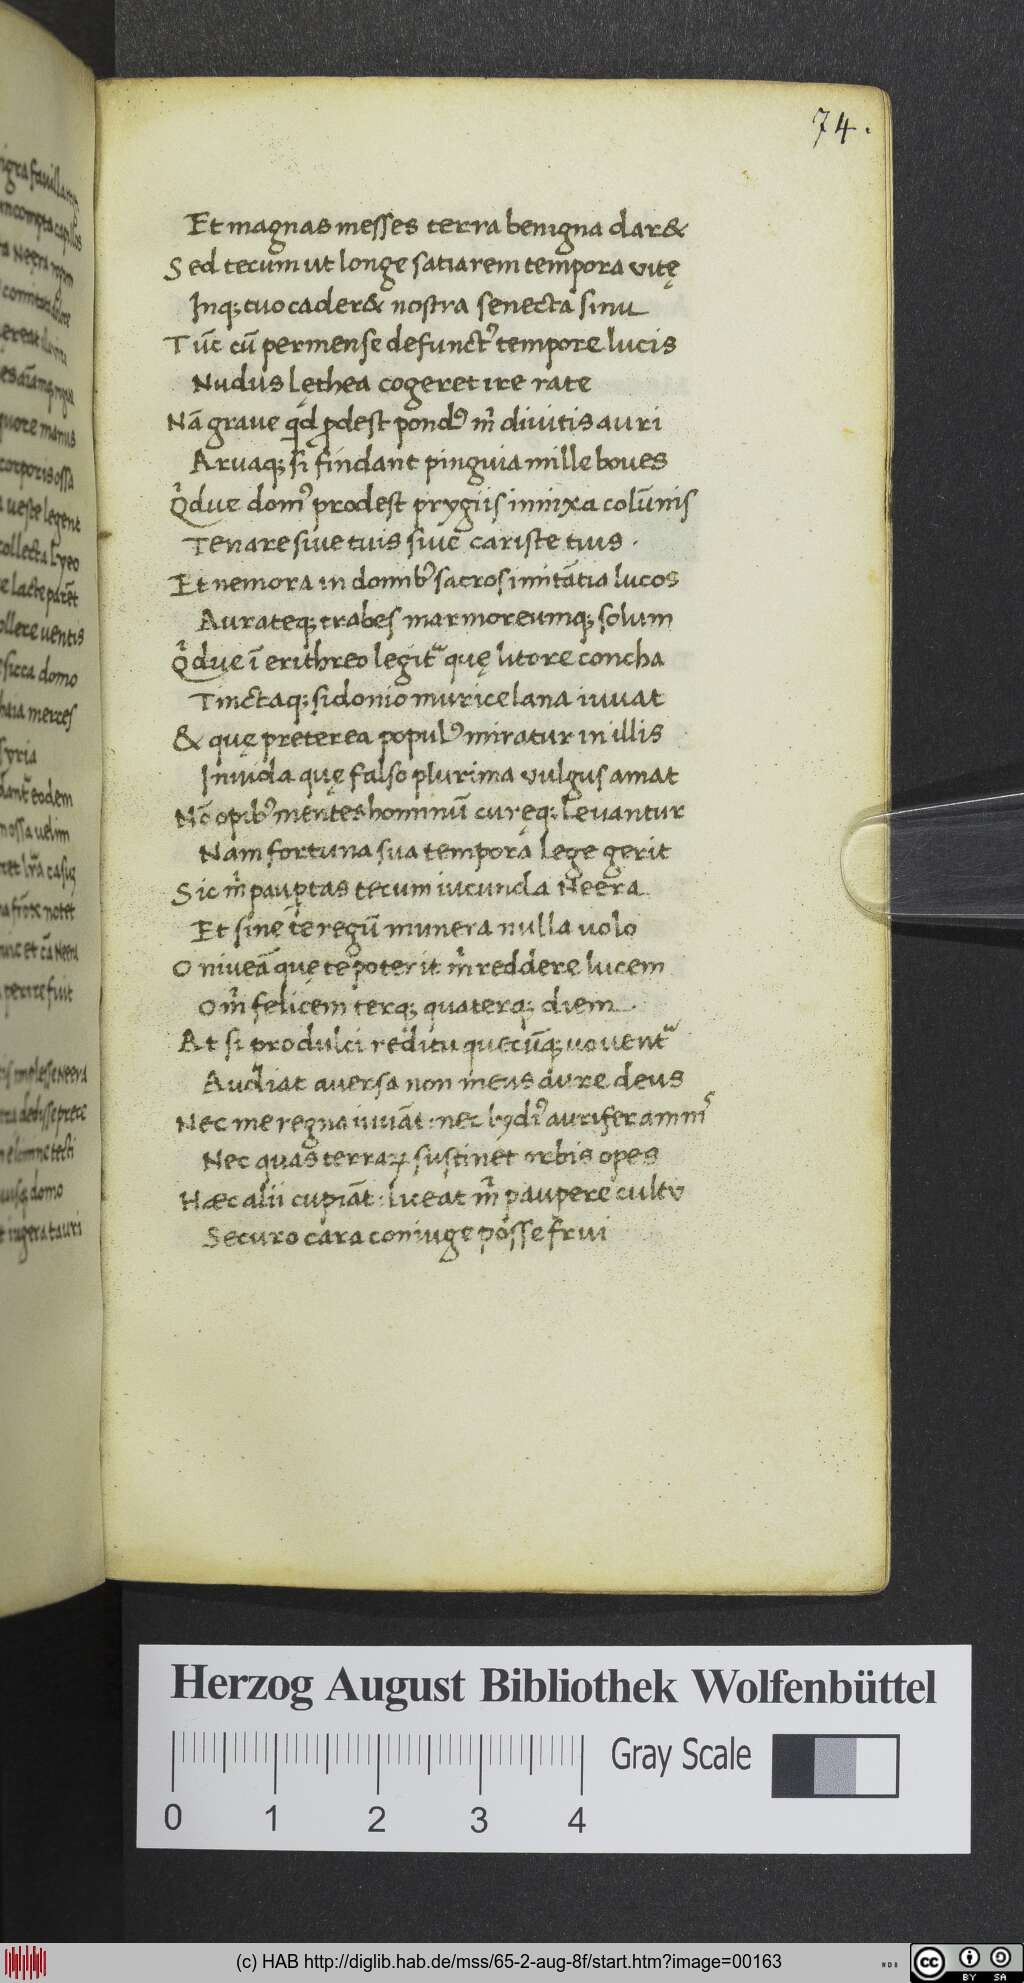 74.
Et magnas messes terra benigna dar&
Sed tecum ut longe satiarem tempora vitę
Inq; tuo cader& nostra senecta sinu
Tūc cū permense defunctꝰ tempore lucis
Nudus lęthea cogeret ire rate
Nā graue qd ꝓdest pondꝰ m̊ divitis auri
Aruaq; si findant pinguia mille boues
Qͥdue domꝰ prodest prygiis innixa colūnis
Tenare siue tuis siue cariste tuis ·
Et nemora in domibꝰ sacros imitātia lucos
Aurateq; trabes marmoreumq; solum
Qͥdue ī erithreo legitᷓ quę litore concha
Tinctaq; sidonio murice lana iuuat
& quę preterea populꝰ miratur in illis
Inuida quę falso plurima vulgus amat
Nō opibꝰ mentes hominū curęq; Leuantur
Nam fortuna sua tempora lege gerit
Sic mͥ pauꝑtas tecum iucunda Neera
Et sine te regū munera nulla uolo
O niueā que te poterit mͥ reddere lucem
O mͥ felicem terq; quaterq; diem
At si pro dulci reditu quecūq; uouentᷓ
Audiat auersa non meus aure deus
Nec me regna iuuāt : nec lydiꝰ aurifer amnis
Nec quas terraꝝ sustinet orbis opes
Hæc alii cupiāt : liceat mͥ paupere cultu
Securo cara coniuge posse frui
Herzog August Bibliothek Wolfenbüttel
Gray Scale
0 1 2 3 4
(c) HAB http://diglib.hab.de/mss/65-2-aug-8f/start.htm?image=00163
cc BY SA